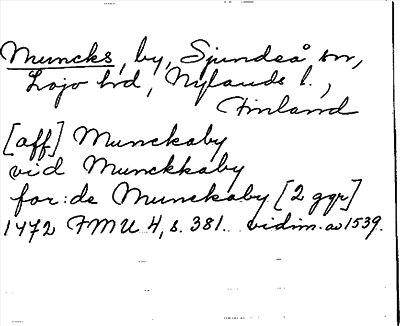 Muncks, by, Sjundeå sn,
Lojo hd, Nylands l.,
Finland
[aff] Munckaby
vid Munckkaby
for: de Munckaby [2 ggr]
1472 FMU 4, s. 381. vidim. av 1539.